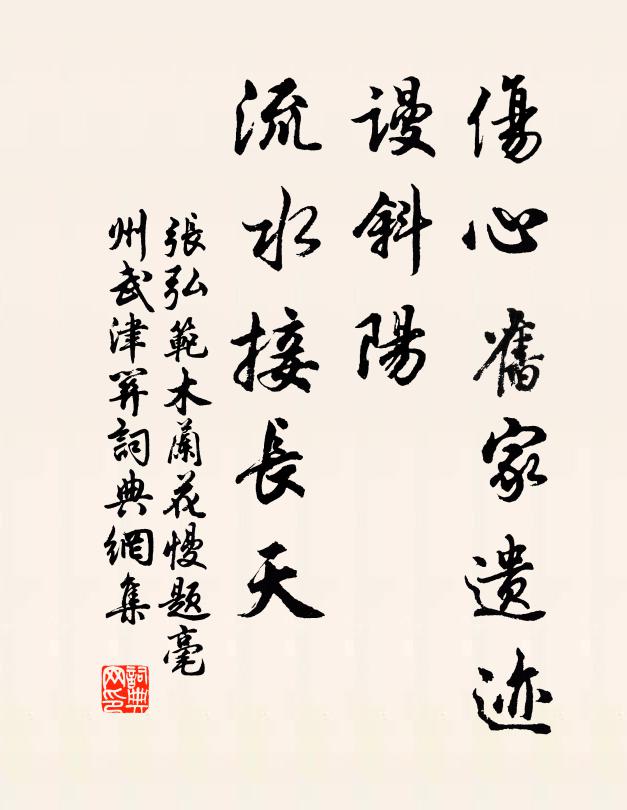 傷心舊家遺迹
謾斜陽
流水接長天
張弘範木蘭花慢題亳
州武津關詞典網集
詞典网印